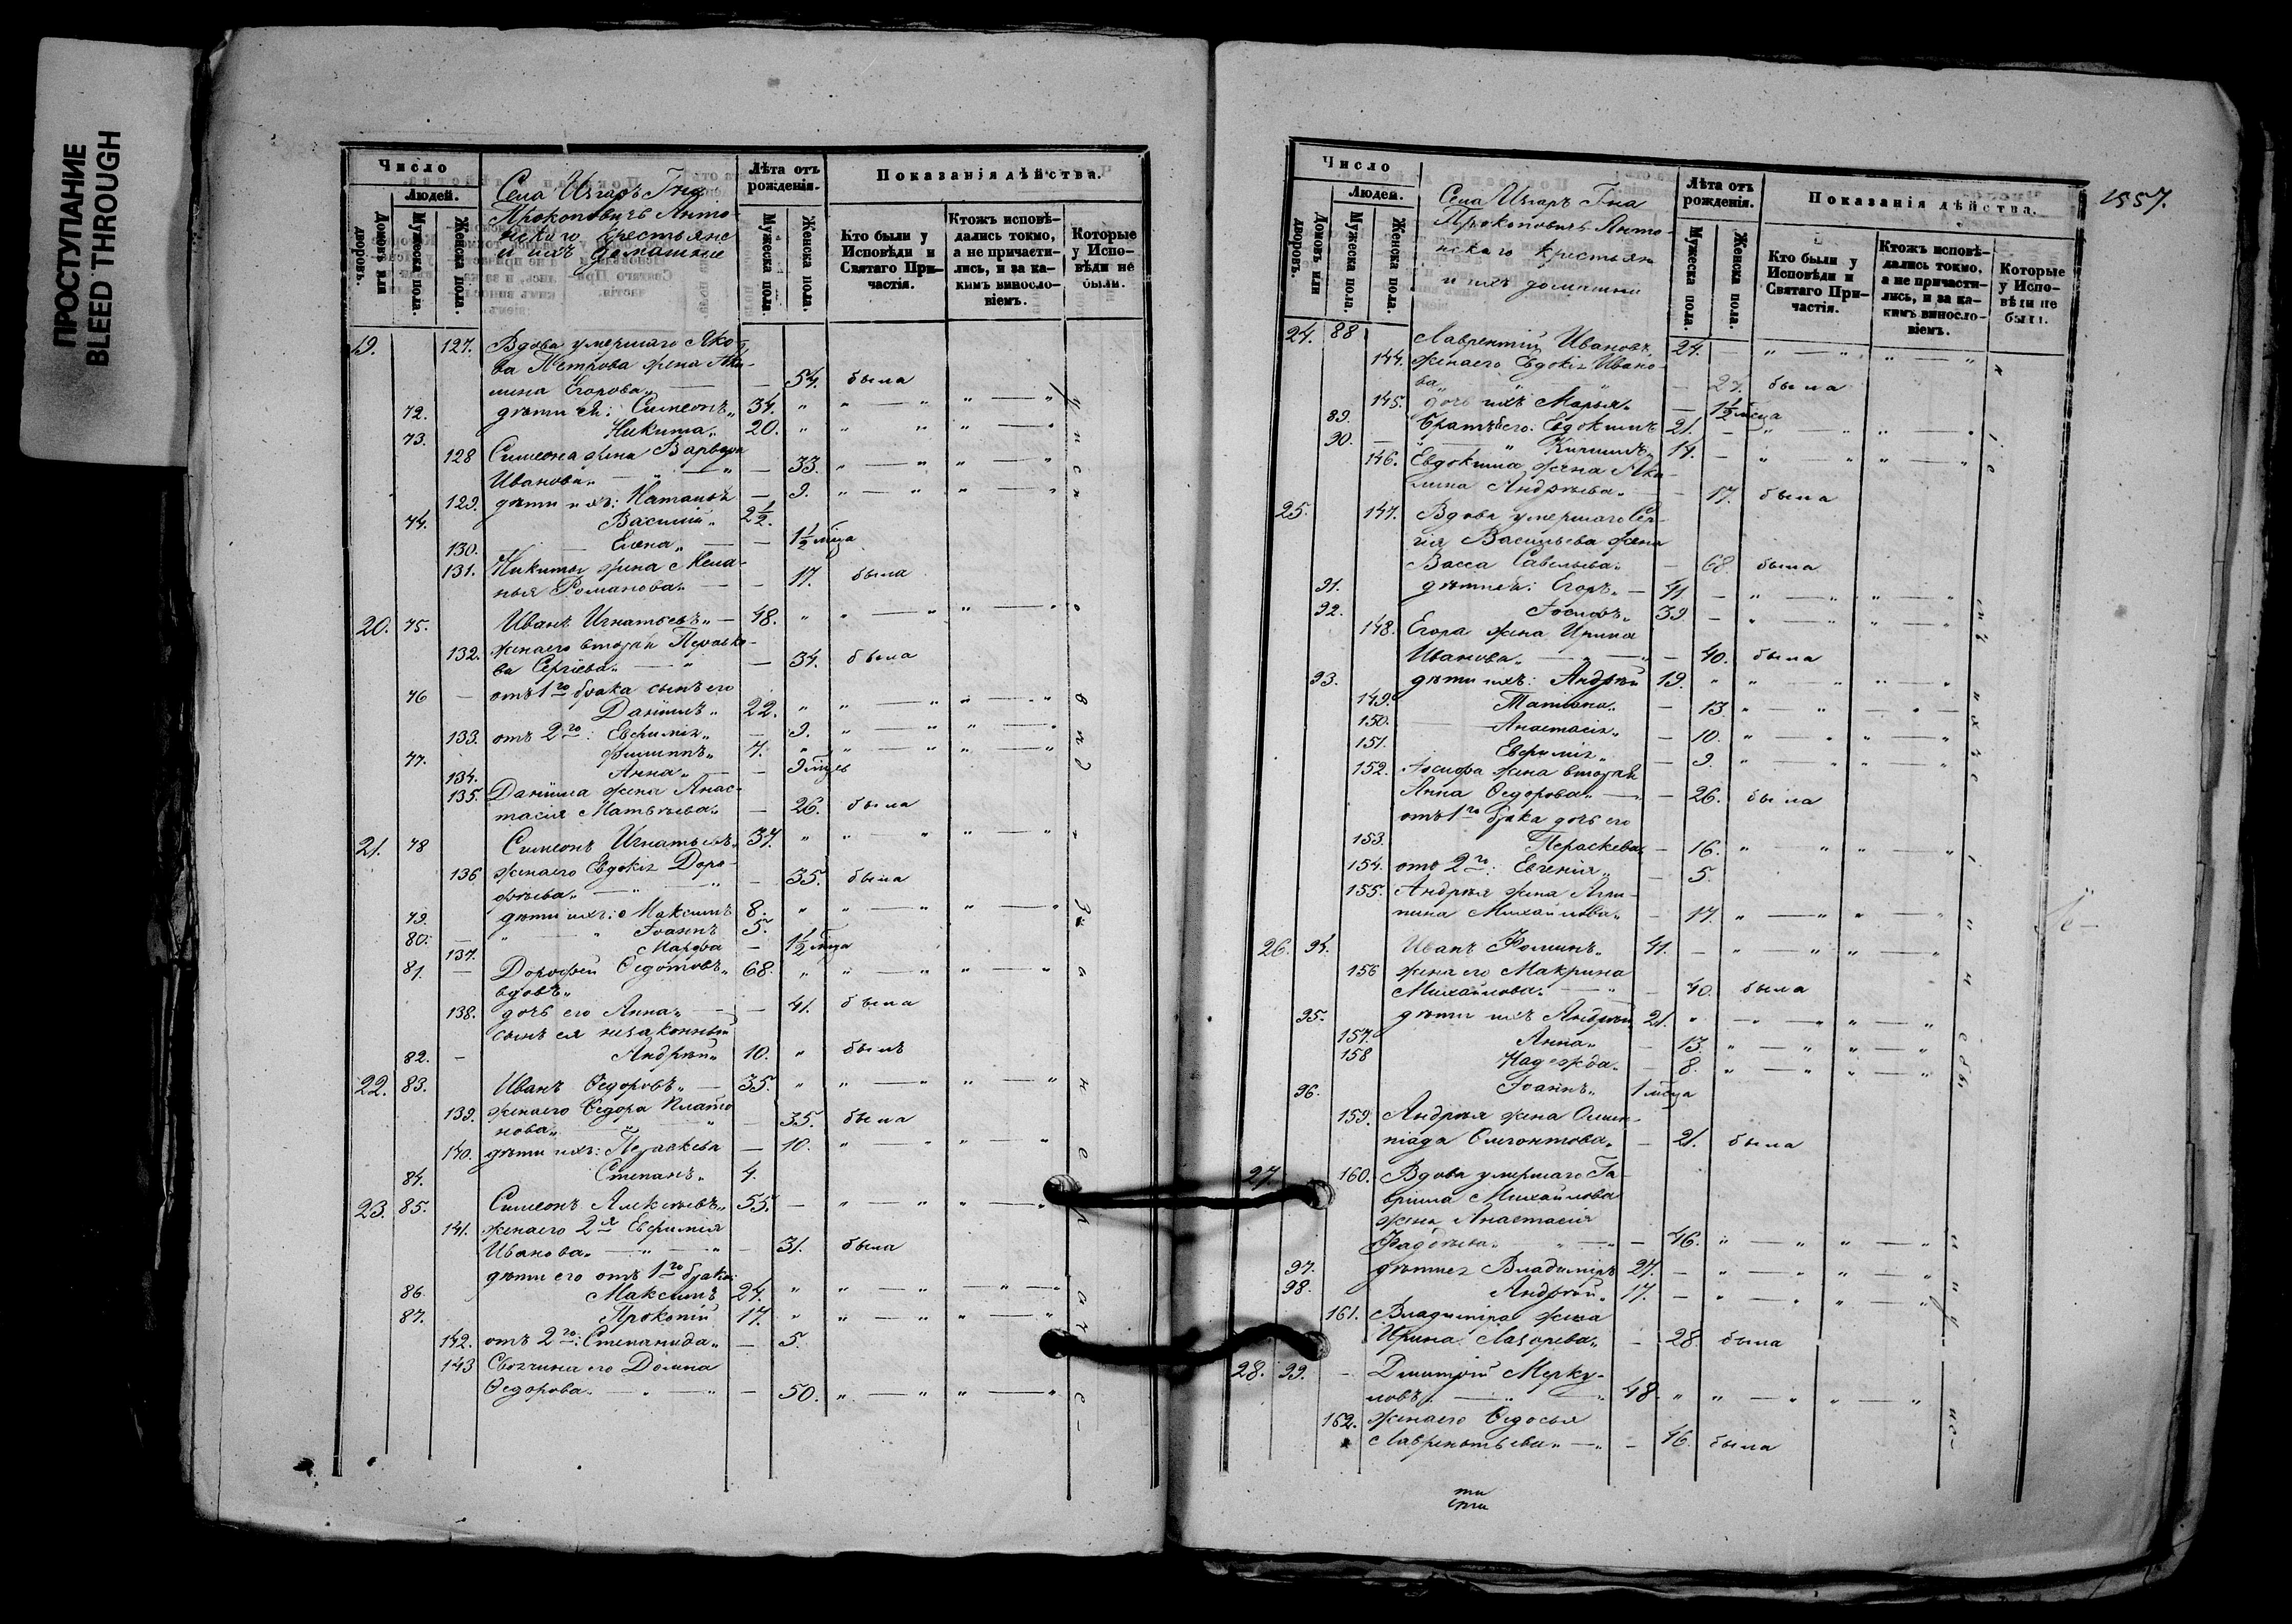 ПРОСТУПАНИЕ
BLEED THROUGH
Число
Людей.
Домовъ или дворовъ.
Мужеска пола.
Женска пола.
Села Изгаръ Гна
Прокоповичъ Анто-
нскаго крестьяне
и ихъ домашние
Лѣта отъ рожденія.
Мужеска пола.
Женска пола.
Показанія дѣйства.
Кто были у Исповѣди и Святаго Причастія.
Ктожъ исповѣдались токмо, а не причастились, и за какимъ винословіемъ.
Которые у Исповѣди не были.
19. 127. Вдова умершаго Яко-
ва Петрова жена Аку-
лина Егорова „ — 54. была
72. дѣти ея: Симеонъ „ 34. „ „ — „ „ — „
73. Никита „ 20. „ „ „ „ — „
128 Симеона жена Варвара
Иванова „ — „ — „ — 33. „ — „ „ — „
129. дѣти ихъ: Наталья — 9. „ — „ „ — „
74. Василій „ 2½.
130. Елена „ — 1½ мца
131. Никиты жена Мела-
нья Романова „ — 17. была
20. 75. Иванъ Игнатьевъ „ — 48. „ „ — „ „ — „
132. жена его вторая Пераско-
ва Сергіева „ — „ — 34. была
76 — отъ 1го брака сынъ его
Даніилъ „ 22. „ „ — „ „ — „
133. отъ 2го: Евфимія „ — 9. „ — „ „ — „
77. Филиппъ „ 7. „ „ — „ „ — „
134. Анна „ — 9 мцев
135. Даніила жена Анас-
тасія Матвѣева „ — 26. была
21. 78 Симеонъ Игнатьевъ „ 37. „ „ — „ „ — „
136 жена его Евдокія Доро-
фѣева „ — „ — 35. была
79. дѣти ихъ: Максимъ 8. „ „ — „ „ — „
80. — „ „ Іоаннъ 5.
137. Марфа — 1½ мца
81. — Дорофей Ѳедотовъ „ 68. „ „ — „ „ — „
вдовъ „
138. дочь его Анна „ — 41. была
сынъ ея незаконный
82. — Андрей „ 10. „ былъ
22. 83. Иванъ Ѳедоровъ „ — 35. „ „ — „ „ — „
139. жена его Ѳедора Плато
нова „ — 35. была
140. дѣти ихъ: Пераскева — 10. „ — „ „ — „
84. Степанъ „ 4.
23. 85. Симеонъ Алексѣевъ „ 55. — „ — „ „ — „
141. жена его 2я Евфимія
Иванова „ — „ — „ — 31. была
дѣти его отъ 1го брака:
86. Максимъ 24. „ „ — „ — „ — „
87. Прокопій 17. „ „ — „ „ — „
142. отъ 2го: Степанида „ — 5.
143 Своячина его Домна
Ѳедорова „ — „ — „ — 50. „ — „ „ — „
1557.
Число
Людей.
Домовъ или дворовъ.
Мужеска пола.
Женска пола.
Села Изгаръ Гна
Прокоповичъ Анто-
нскаго крестьяне
и ихъ домашніи
Лѣта отъ рожденія.
Мужеска пола.
Женска пола.
Показанія дѣйства.
Кто были у Исповѣди и Святаго Причастія.
Ктожъ исповѣдались токмо, а не причастились, и за какимъ винословіемъ.
Которые у Исповѣди не были.
24. 88 Лаврентій Ивановъ 24. — „ — „ „ — „
144. жена его Евдокія Ивано-
ва „ „ — „ — 24. была
145. дочь ихъ Марья „ — 1½ мца
89. братья его: Евдокимъ 21. — „ — „ „ — „
90. — „ — „ Кирилъ „ 14. — „ „ „ — „
146. Евдокима жена Аку-
лина Андрѣева „ — 17. была
25. 147. Вдова умершаго Сер-
гія Васильева жена
Васса Савельева „ — 68. была
91. дѣти ея: Егоръ „ — 41. — „ — „ „ — „
92. Іосифъ „ 39. — „ — „ „ — „
148. Егора жена Ирина
Иванова „ — „ — „ — 40. была
93. дѣти ихъ: Андрей 19. „ „ — „ „ — „
149. Татіана „ — 13. „ — „ — „ —
150. Анастасія „ — 10. „ — „ „ — „
151. Евфимія „ — 9. „ — „ „ — „
152. Іосифа жена вторая
Анна Ѳедорова „ — „ — 26. была
отъ 1го брака дочь его
153. Пераскева „ — 16. „ — „ „ — „
154. отъ 2го: Евгенія „ — 5.
155. Андрея жена Агри-
пина Михайлова „ — 17. „ — „ „ — „
26. 94. Иванъ Фоминъ „ 41. — „ — „ „ — „
156 жена его Макрина
Михайлова „ — „ — 40. была
95. дѣти ихъ Андрей 21. „ — „ „ — „
157. Анна „ — 13. „ — „ „ — „
158 Надежда „ — 8. „ — „ „ — „
96. Іоаннъ „ 1 мсца
159. Андрея жена Олим-
піада Олегонтова „ — 21. была
27. 160. Вдова умершаго Га-
вріила Михайлова
жена Анастасія
Фадѣева „ — „ — „ — 46. „ — „ „ — „
97. дѣти ея Владиміръ 27. — „ — „ „ — „
98. Андрей „ 17. — „ — „ „ — „
161. Владиміра жена
Ирина Лазорева „ — 28. была
28. 99. — Дмитрій Мерку-
ловъ „ — „ 48. „ „ — „ „ — „
162. жена его Ѳедосья
Лаврентьева „ — „ — 46. была